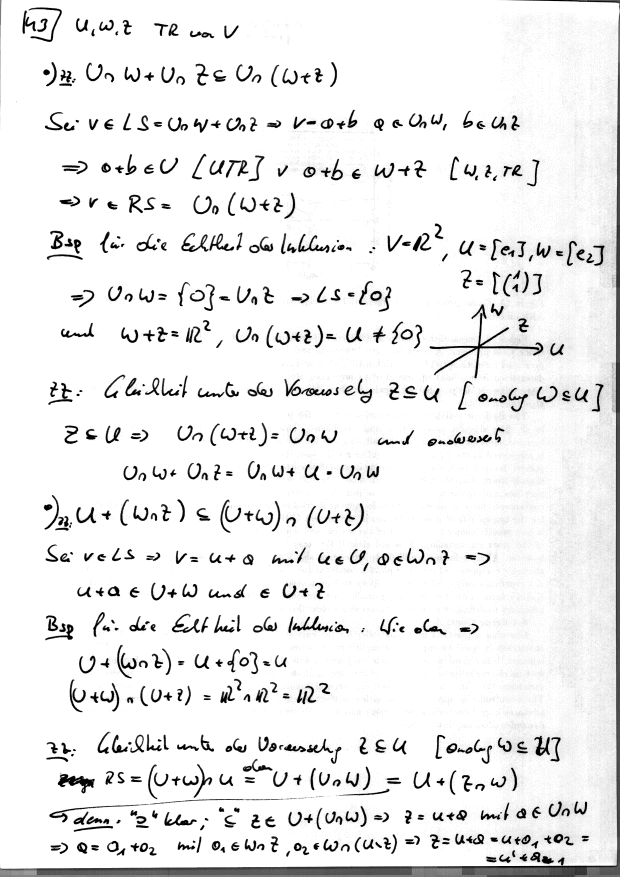 43] U, W, Z TR von V
•) zz: U∩W + U∩Z ⊆ U∩(W+Z)
Sei v ∈ LS = U∩W + U∩Z ⇒ v = a+b a ∈ U∩W, b ∈ U∩Z
⇒ a+b ∈ U [U TR] ∨ a+b ∈ W+Z [W, Z, TR]
⇒ v ∈ RS = U∩(W+Z)
Bsp für die Echtheit der Inklusion : V=ℝ², U=[e₁], W=[e₂]
Z=[(1 1)]
⇒ U∩W = {0} = U∩Z ⇒ LS={0}
und W+Z=ℝ², U∩(W+Z)= U ≠ {0}
W
Z
U
zz: Gleichheit unter der Voraussetzg Z⊆U [analog W⊆U]
Z⊆U ⇒ U∩(W+Z) = U∩W und andererseits
U∩W + U∩Z = U∩W + U = U∩W
•) zz: U + (W∩Z) ⊆ (U+W)∩(U+Z)
Sei v∈LS ⇒ v = u+a mit u∈U, a∈W∩Z ⇒
u+a ∈ U+W und ∈ U+Z
Bsp für die Echtheit der Inklusion : Wie oben ⇒
U+(W∩Z) = U+{0}=U
(U+W)∩(U+Z) = ℝ²∩ℝ² = ℝ²
zz: Gleichheit unter der Voraussetzg Z⊆U [analog W⊆U]
RS = (U+W)∩U = oben U+(U∩W) = U+(Z∩W)
denn: "⊇" klar; "⊆" z∈ U+(U∩W) ⇒ z = u+a mit a∈ U∩W
⇒ a = a₁+a₂ mit a₁∈W∩Z, a₂∈W∩(U\Z) ⇒ z=u+a = u+a₁+a₂ =
= u'+a₁